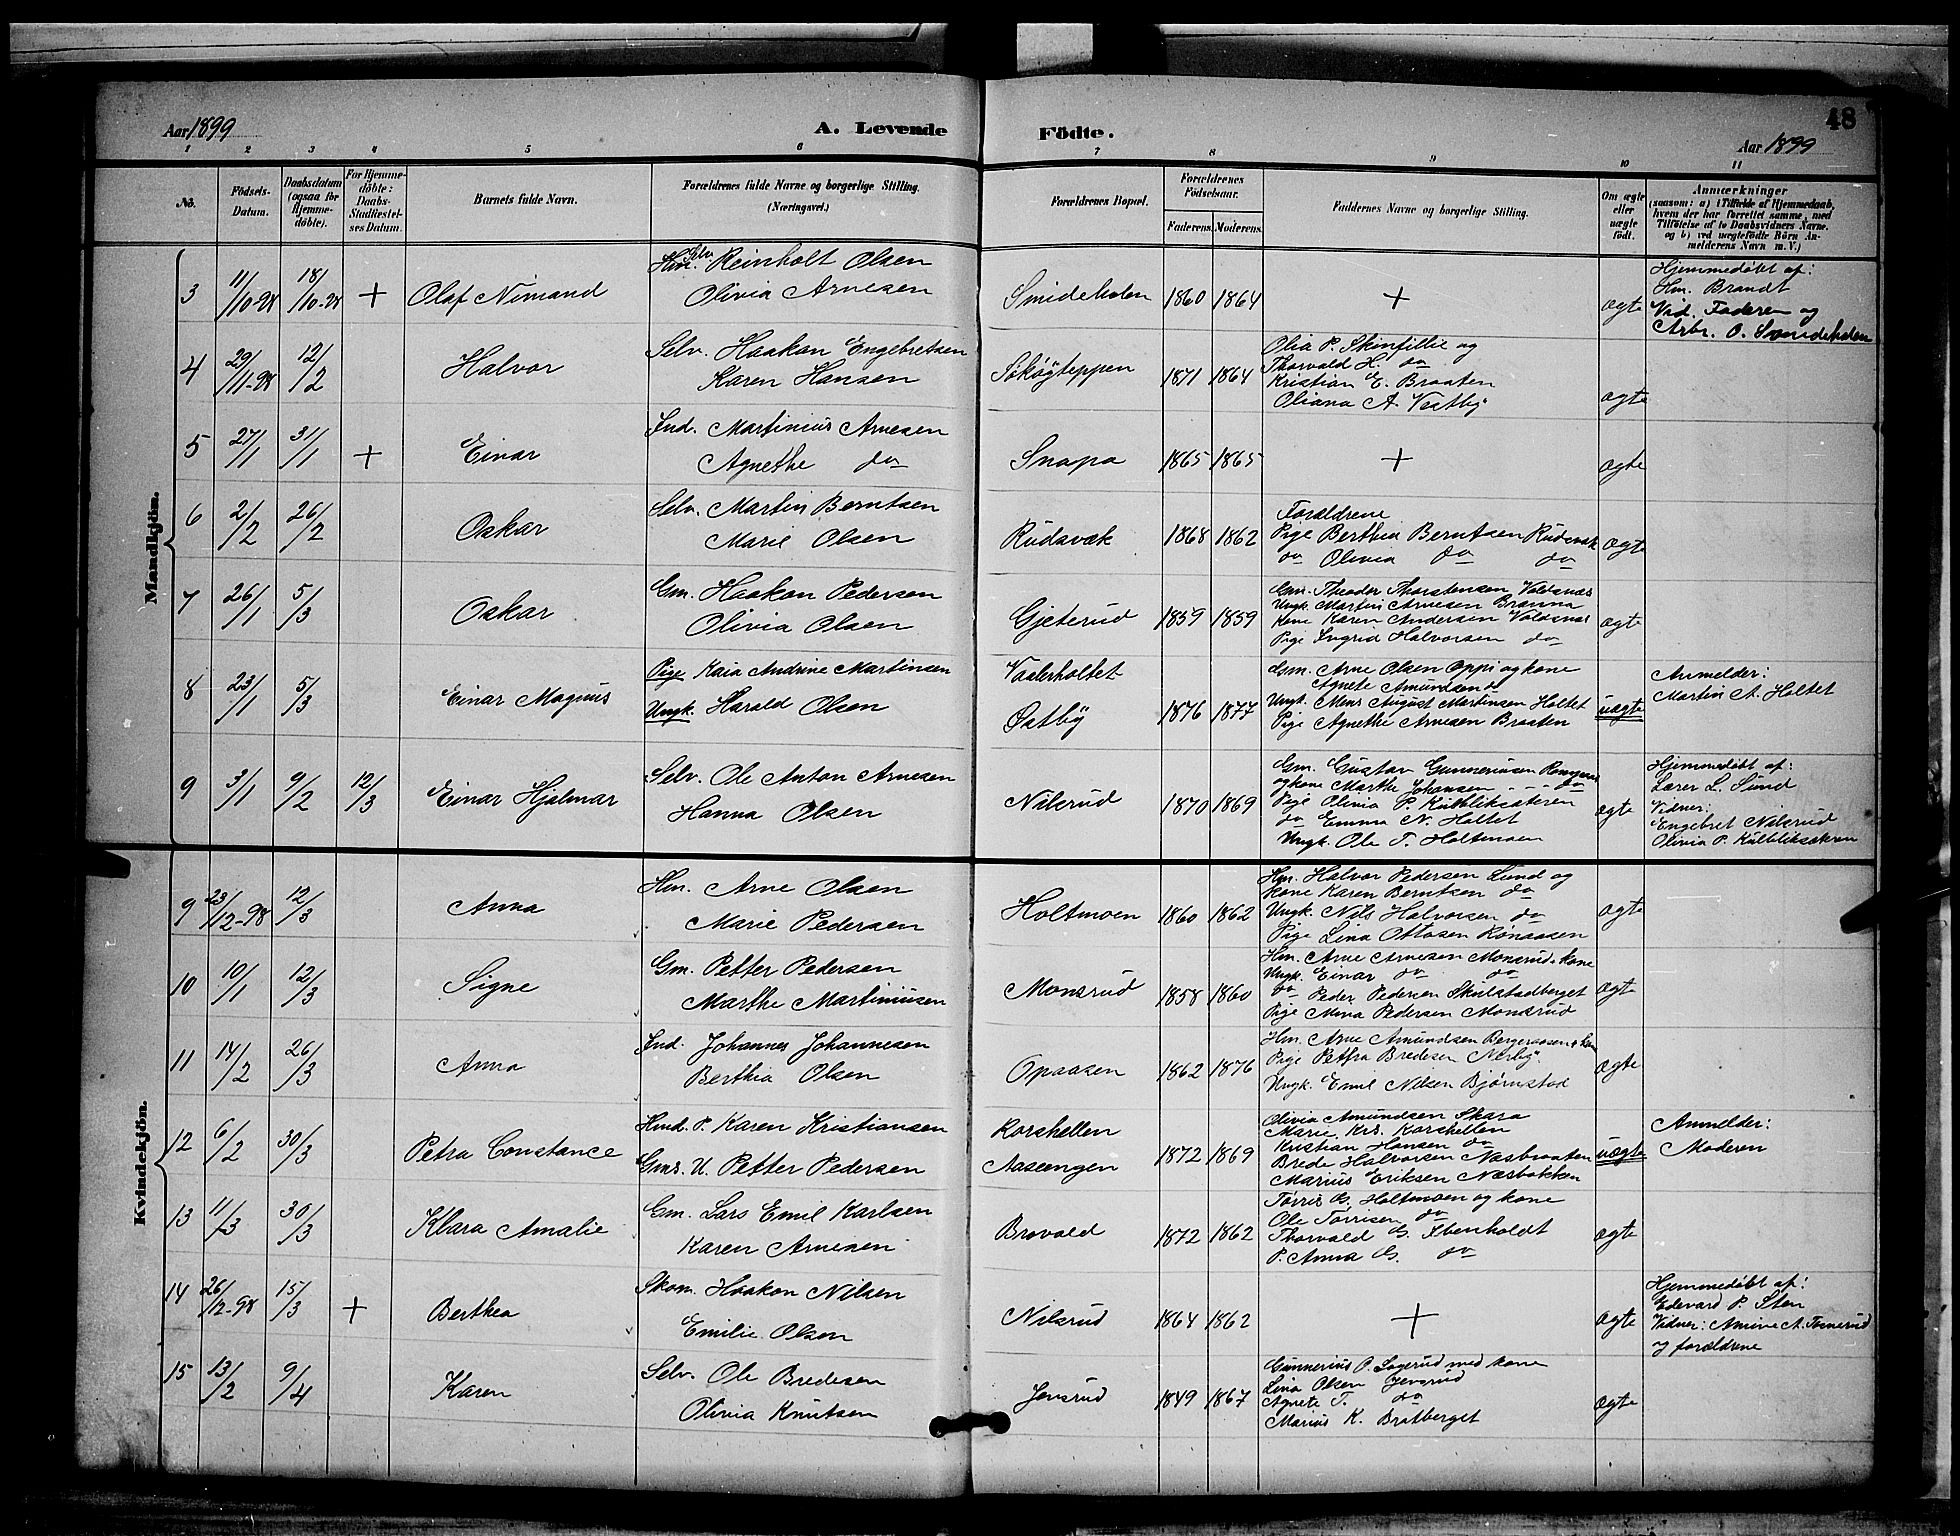 48
Aar 1899
A. Levende
Födte.
Aar 1899
1 2 3 4 5 6 7 8 9 10 11
No.
Födsels-Datum.
Daabsdatum (ogsaa for Hjemmedöbte).
For Hjemmedöbte: Daabs-Stadfæstelses Datum.
Barnets fulde Navn.
Forældrenes fulde Navne og borgerlige Stilling.
(Næringsvei.)
Forældrenes Bopæl.
Forældrenes Födselsaar.
Faderens. Moderens.
Faddernes Navne og borgerlige Stilling.
Om ægte eller uægte födt.
Anmærkninger
(saasom: a) i Tilfælde af Hjemmedaab,
hvem der har forrettet samme, med
Tilföielse af to Daabsvidners Navne.
og b) ved uægtefödte Börn An-
melderens Navn m. V.)
Mandkjön.
3 11/10-98 18/10-98 + Olaf Nimand
Hm. Selv. Reinholt Olsen
Olivia Arnesen
Smideholen 1860 1864 + ægte
Hjemmedöbt af:
Hm. Brandt
Vid. Faderen og
Arbr. O. Smideholen
4 29/11-98 12/2 Halvor
Selv. Haakon Engebretsen
Karen Hansen
Sökögteppen 1871 1864
Olia P. Skinfillie og
Thorvald H. do
Kristian E. Braaten
Oliana A. Vestby
ægte
5 27/1 31/1 + Einar
Ind. Martinius Arnesen
Agnethe do
Snapa 1865 1865 + ægte
6 2/2 26/2 Oskar
Selv. Martin Berntsen
Marie Olsen
Rudsvæk 1868 1862
Forældrene
Pige Berthea Berntsen Rudsvæk
do Olivia do do
ægte
7 26/1 5/3 Oskar
Gm. Haakon Pedersen
Olivia Olsen
Gjeterud 1859 1859
Gm. Theodor Thorstensen Voldsnæs
Ungk. Martin Arnesen Branna
Kone Karen Andersen Voldsnæs
Pige Ingrid Halvorsen do
ægte
8 23/1 5/3 Einar Magnus
Pige Kaia Andrine Martinsen
Ungk. Harald Olsen
Vaalerholtet
Østby
1876 1877
Gm. Arne Olsen Oppi og kone
Agnete Amundsen do
Ungk. Mens August Martinsen Holtet
Pige Agnethe Arnesen Braaten
uægte
Anmelder:
Martin A. Holtet
9 3/1 9/2 12/3 Einar Hjalmar
Selv. Ole Anton Arnesen
Hanna Olsen
Nilsrud 1870 1869
Gm. Gustav Gunneriusen
og kone Marthe Johansen do
Pige Olivia P. Kulbliksæteren
do Emma N. Holtet
Ungk. Ole T. Holtmoen
ægte
Hjemmedöbt af:
Lærer L. Lund
Vidner:
Engebret Nilsrud
Olivia P. Kulbliksækren
Kvindekjön.
9 23/12-98 12/3 Anna
Hm. Arne Olsen
Marie Pedersen
Holtmoen 1860 1862
Hm. Halvor Pedersen Lund og
kone Karen Berntsen do
Ungk. Nils Halvorsen do
Pige Lina Ottosen Rönaasen
ægte
10 10/1 12/3 Signe
Gm. Petter Pedersen
Marthe Martiniusen
Monsrud 1858 1860
Hm. Arne Arnesen Monsrud + kone
Ungk. Einar do do
do Peder Pedersen Skulstadberget
Pige Mina Pedersen Monsrud
ægte
11 14/2 26/3 Anna
Ind. Johannes Johannesen
Berthia Olsen
Opsaasen 1862 1876
Hm. Arne Amundsen Bergersaasen + kone
Pige Petra Bredesen Nerby
Ungk. Emil Nilsen Björnstad
ægte
12 6/2 30/3 Petra Constance
Hmd. P. Karen Kristiansen
Gms. U. Petter Pedersen
Korshellen
Aaseengen
1872 1869
Olivia Amundsen Skara
Marie Krs. Korshellen
Kristian Hansen do
Brede Halvorsen Næsbraaten
Marius Eriksen Næsbakken
uægte
Anmelder:
Moderen
13 11/3 30/3 Klara Amalie
Gm. Lars Emil Karlsen
Karen Arnesen
Brovold 1872 1862
Törris G. Holtmoen og kone
Ole Törrisen do
Thorvald G. Ibenholdt
P. Anna G. do
ægte
14 26/12-98 15/3 + Berthea
Skom. Haakon Nilsen
Emilie Olsen
Nilsrud 1864 1862 + ægte
Hjemmedöbt af:
Edevard P. Sten
Vidner: Amine A. Tömerud
og forældrene
15 13/2 9/4 Karen
Selv. Ole Bredesen
Olivia Knutsen
Jensrud 1849 1867
Gunnerius P. Sagerud med kone
Lina Olsen Jensrud
Agnete T. do
Marius K. Bratberget
ægte